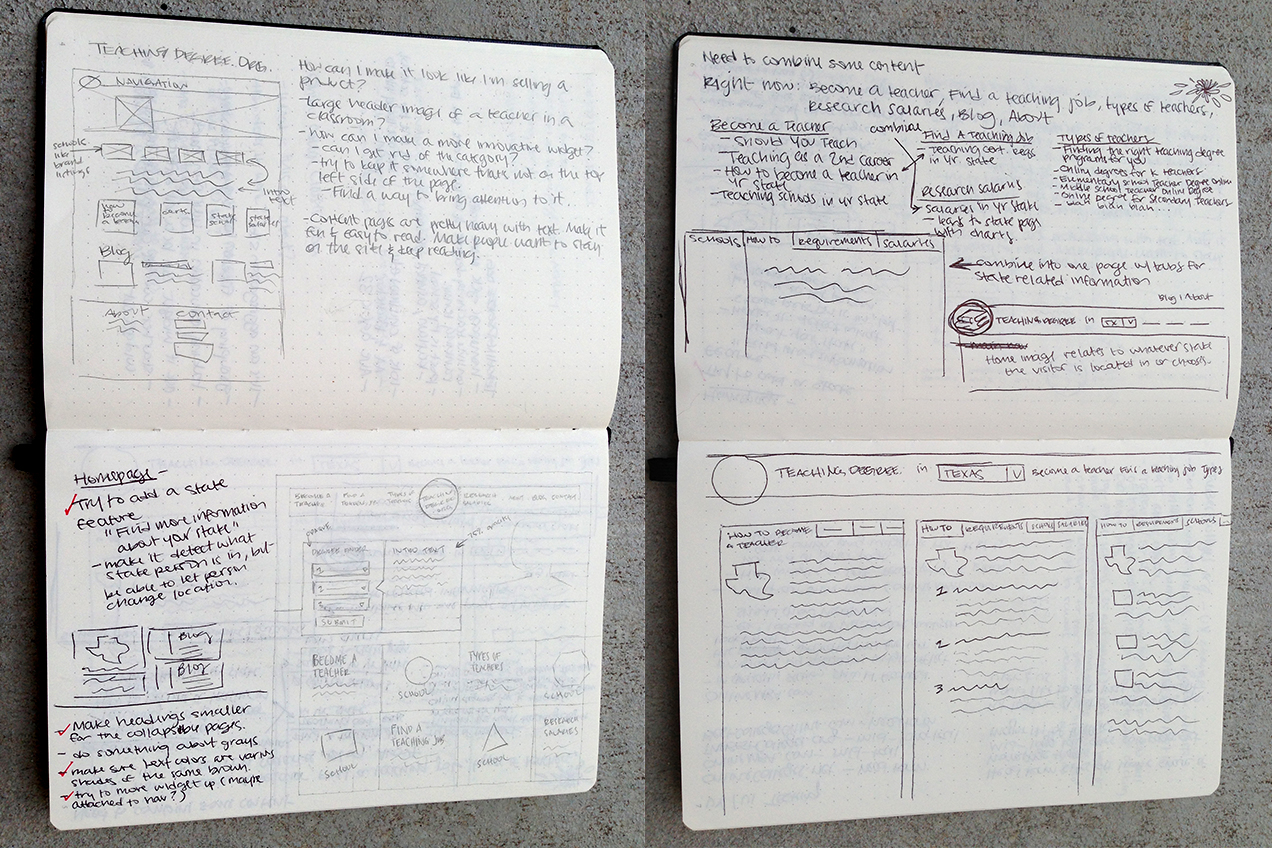 TEACHING DEGREE.ORG.
NAVIGATION
schools
like
brand
listings
intro
text
how
become
a teach
state
school
state
salaries
Blog
About
contact
How can I make it look like I'm selling a
product?
-large header image of a teacher in a
classroom?
-how can I make a more innovative widget?
-can I get rid of the category?
-try to keep it somewhere thats not on the top
left side of the page.
-Find a way to bring attention to it.
-Content pages are pretty heavy with text. Make it
fun & easy to read. Make people want to stay
on the site & keep reading.
Homepage-
Try to add a state
feature
"Find more information
about your state"
- make it detect what
state person is in, but
be able to let person
change location.
Blog
Blog
Make headings smaller
for the collapsible pages.
- do something about grays
make sure text colors are various
shades of the same brown.
try to move widget up (maybe
attached to nav?)
BECOME A
TEACHER
TYPES OF
TEACHERS
RESEARCH
SALARIES
BLOG
INTRO TEXT
1
2
3
SUBMIT
BECOME A
TEACHER
SCHOOL
TYPES OF
TEACHERS
SCHOOL
SCHOOL
FIND A
TEACHING JOB
SCHOOL
RESEARCH
SALARIES
Need to combine some content
Right now: Become a teacher, Find a teaching job, types of teachers,
Research salaries, Blog, About
Become a Teacher
- Should You Teach
- Teaching as a 2nd career
- How to become a teacher in
yr state
- Teaching schools in yr state
combine
Find A Teaching Job
- Teaching cert. regs
in yr state
Research salaries
- salaries in yr state
- leads to state page
with charts.
Types of teachers
- Finding the right teaching degree
programs for you
- Online degrees for K teachers
- Elementary School Teacher Degree Online
- Middle School Teacher Online Degree
- Online Degree for Secondary Teachers
- blah blah blah...
SCHOOLS
HOW TO
REQUIREMENTS
SALARIES
combine into one page w/ tabs for
state related information
Blog | About
TEACHING DEGREE in TX V
Home image relates to whatever state
the visitor is located in or chooses.
TEACHING DEGREE in TEXAS V Become a teacher Find a teaching job Types
HOW TO BECOME
A TEACHER
HOW TO
REQUIREMENTS
SCHOOL
SALARIES
1
2
3
HOW TO
REQUIREMENT
SCHOOLS